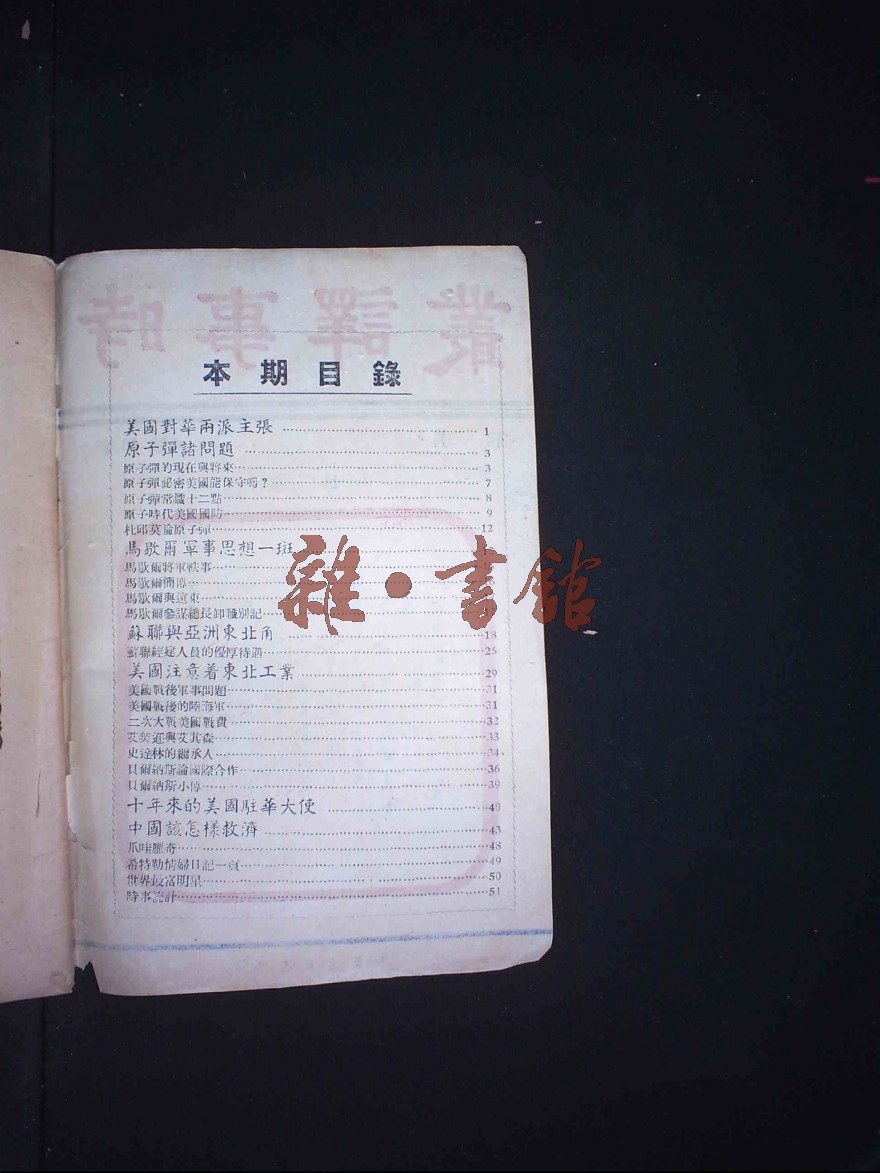 時事譯叢
本期目錄
美國對華兩派主張 1
原子彈諸問題 3
原子彈的現在與將來 3
原子彈祕密美國能保守嗎？ 7
原子彈常識十二點 8
原子時代美國國防 9
杜邱莫論原子彈 12
馬歇爾軍事思想一斑
馬歇爾將軍軼事
馬歇爾簡傳
馬歇爾與遠東
馬歇爾參謀總長卸職別記
蘇聯與亞洲東北角 18
蘇聯經建人員的優厚待遇 25
美國注意着東北工業 29
美國戰後軍事問題 31
美國戰後的陸海軍 31
二次大戰美國戰費 32
艾契遜與艾其森 33
史達林的繼承人 34
貝爾納斯論國際合作 36
貝爾納斯小傳 39
十年來的美國駐華大使 40
中國該怎樣救濟 43
爪哇獵奇 48
希特勒情婦日記一頁 49
世界最富明星 50
時事統計 51
雜·書館